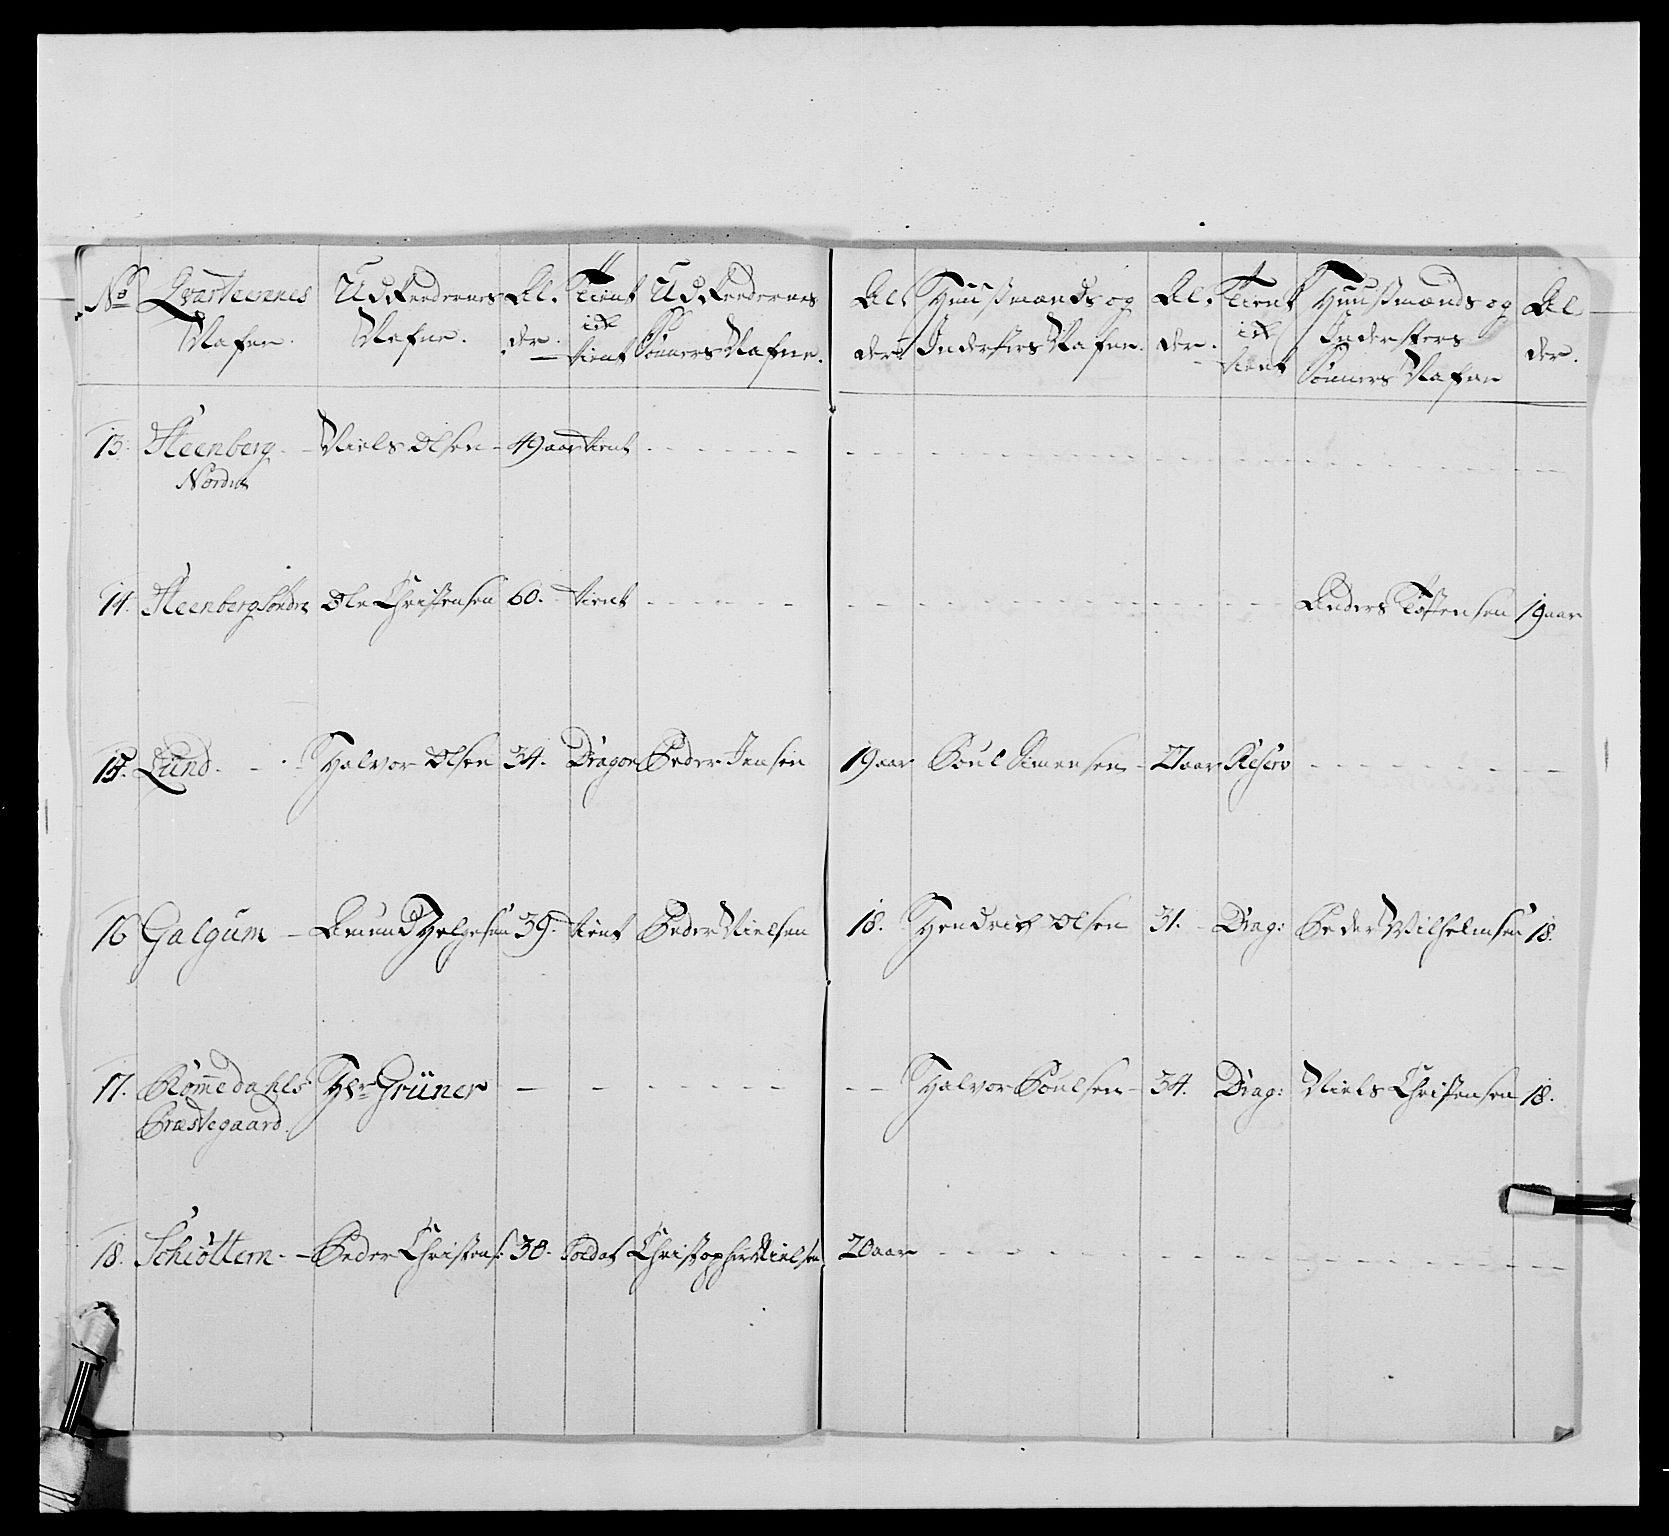 No Qvarteernes Nafne. Udreedernes Nafne. Al. der. Tient ick tient Udreedernes Sönners Nafne. Al der. Huusmænds og Indersters Nafne. Al. der. Tient ick tient Huusmænds og Indersters Sönners Nafne Al der.
13. Steenberg Nordre - Niels Olsen - 49 aar tient
14. Steenberg Söndre Ole Christensen 60. tient Anders Tostensen 19 aar
15. Lund - Halvor Olsen 34. Dragon Peder Jensen 19 aar Poul Simensen - 27 aar Reserv
16 Galgum - Amund Helgesen 39. tient Peder Nielsen 18. Hendrich Olsen 31. - Drag: Peder Wilhelmsen 18.
17. Römedahls Præstegaard Hr. Grüner - Halvor Poulsen - 34. Drag: Niels Christensen 18.
18. Schiöttem - Peder Christens: 30. Soldat Christopher Nielsen 20 aar